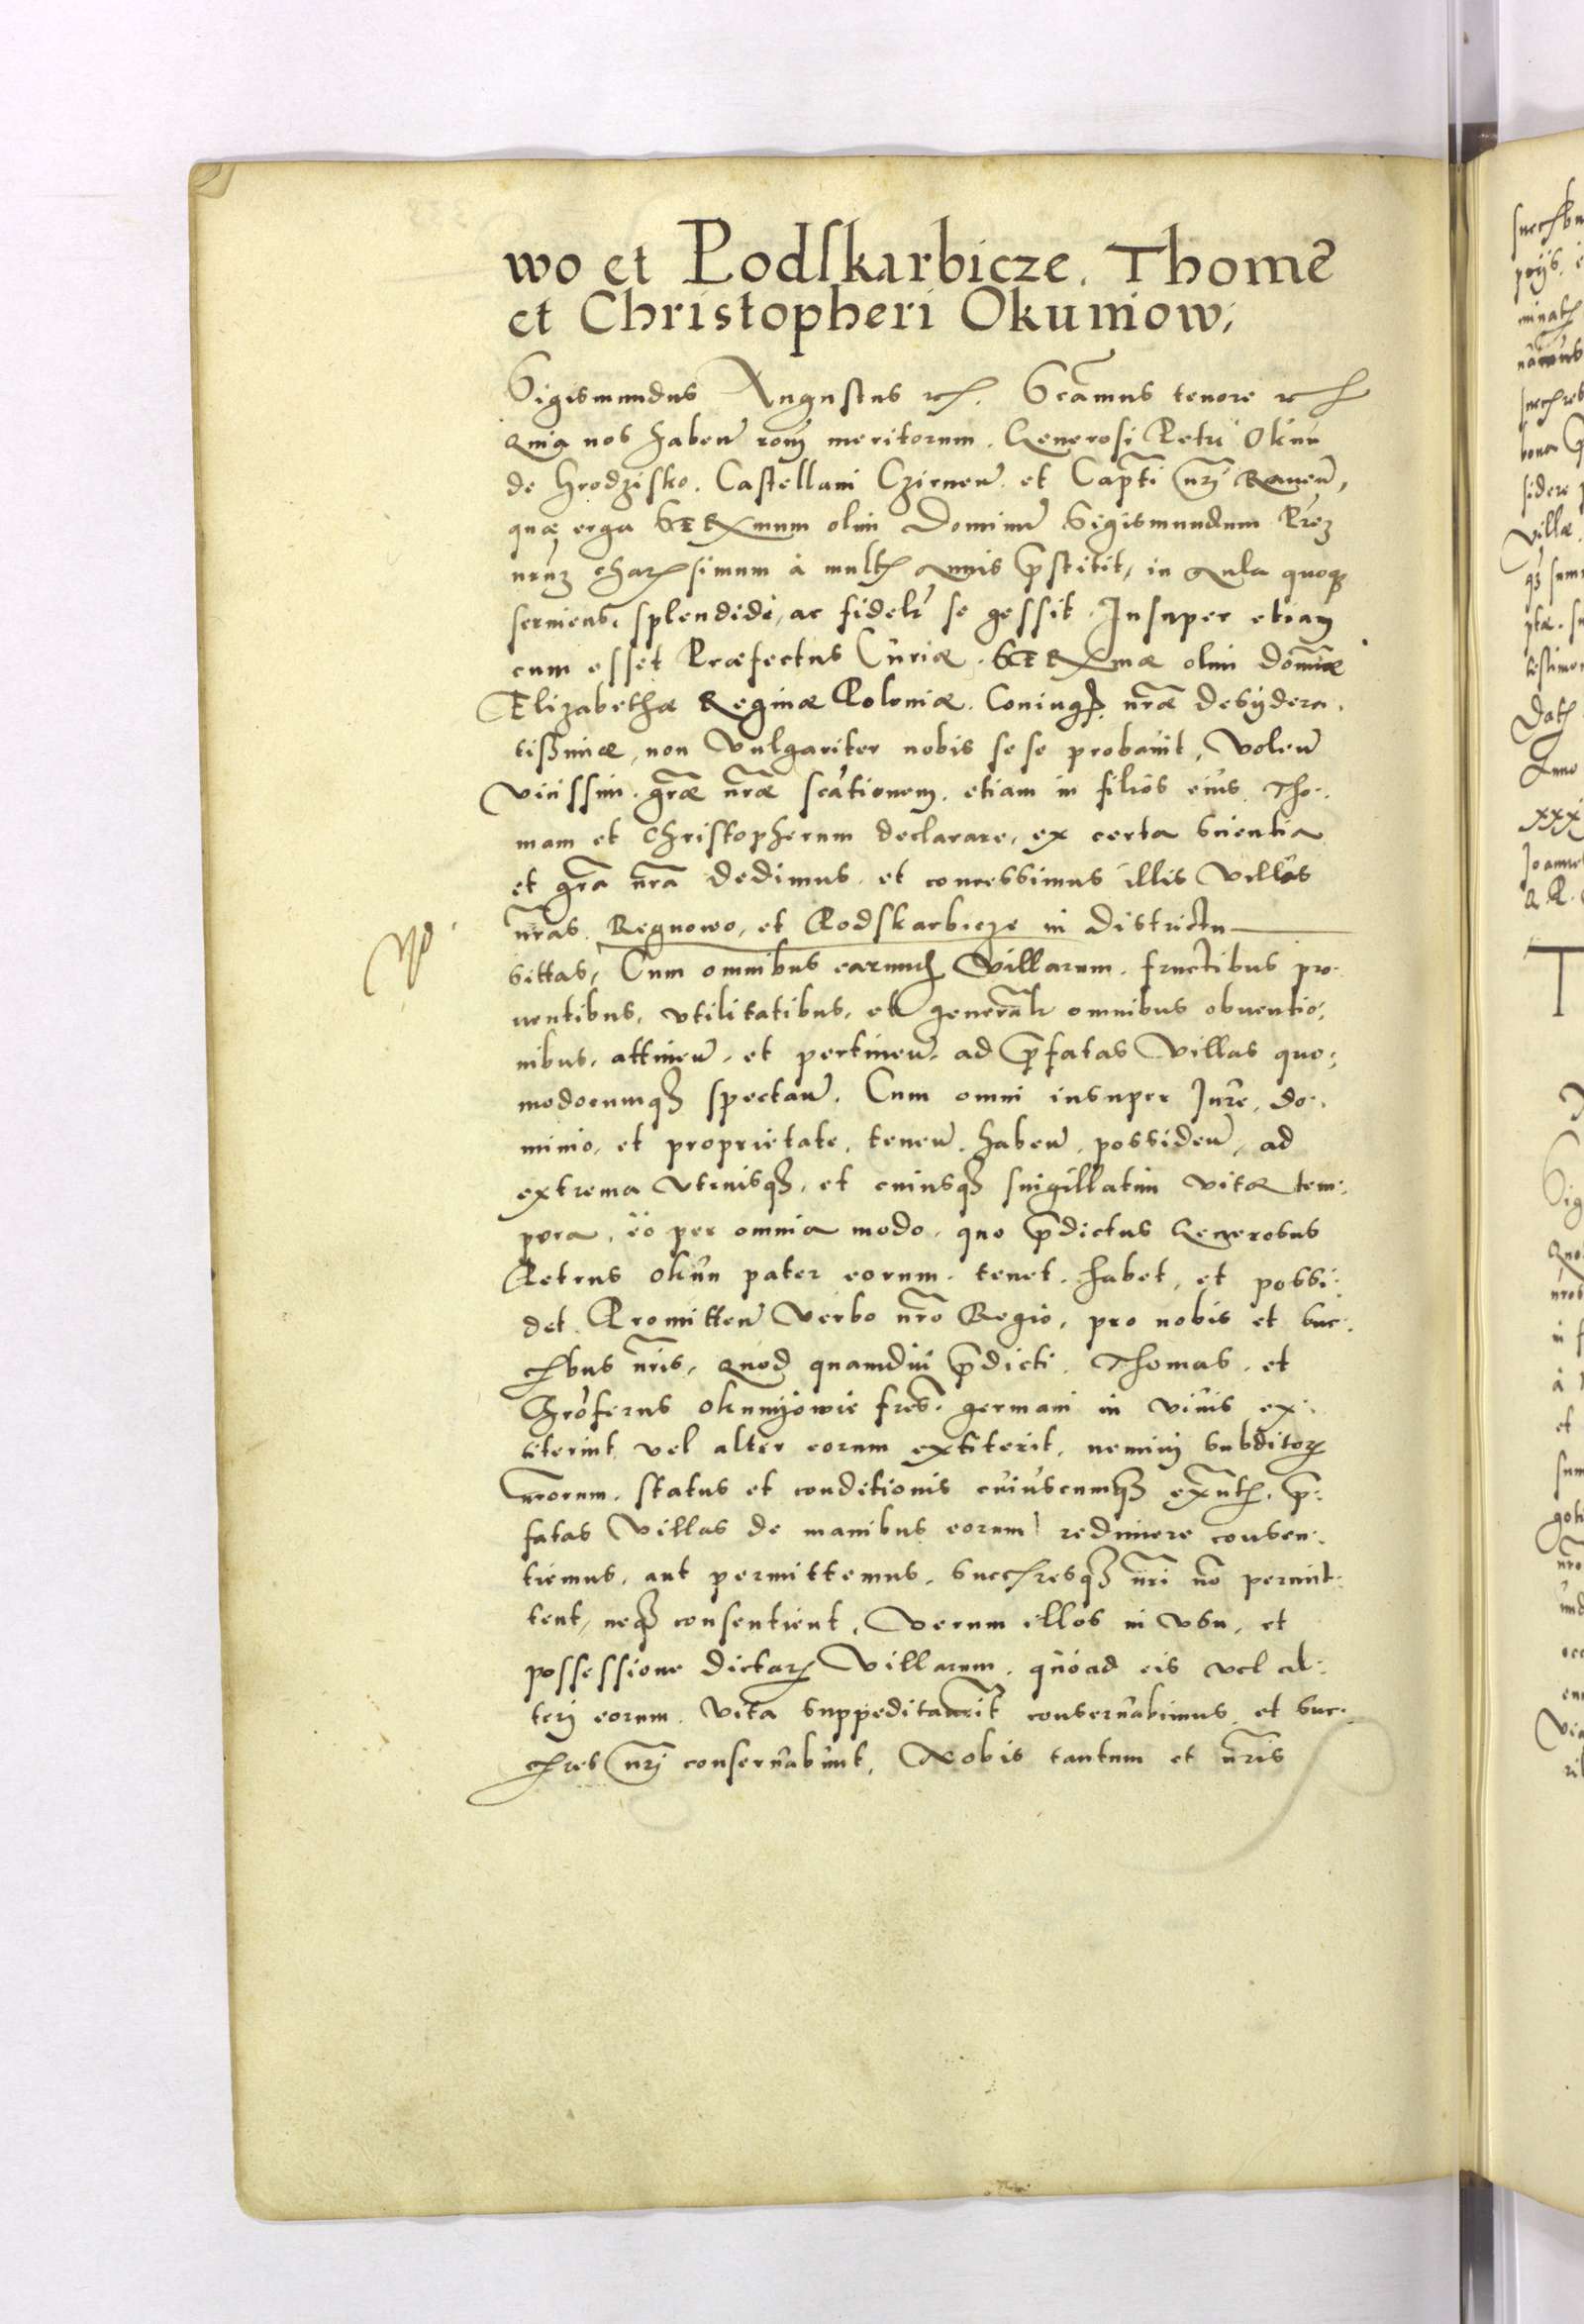 wo et Podskarbicze. Thome
et Christopheri Okuniow.
Sigismundus Augustus etc. Scamus tenore etc
Quia nos haben rom meritorum. Generosi Petri Okun
de Hrodzisko. Castellani Czirnen. et Capti nri Raven,
quæ erga Ser Rxmum olim Dominu Sigismundum Prem
nrum charissimum à multis Annis prstitit, in Aula quoq
serviens, splendide, ac fidelr se gessit. Insuper etiam
cum esset Præfectus Curiæ. Ser Rxmæ olim domiæ
Elizabethæ Reginæ Poloniæ. Coniugis nræ desydera.
tissimæ, non vulgariter nobis se se probavit, volen
vicissim. græ nræ scationem. etiam in filios eius Tho..
mam et Christopherum declarare, ex certa scientia
et gra nra dedimus et concessimus illis villas
nras. Regnowo, et Podskarbicze in districtu
No
sittas, Cum omnibus earund villarum. fructibus pro.
ventibus, utilitatibus, et generalr omnibus obventio.
nibus, attinen. et pertinen. ad prfatas villas quo.
modocumq spectan. Cum omni insuper Jure, do..
minio, et proprietate, tenen. haben. possiden, ad
extrema utriusq, et cuiusq singillatim vitæ tem.
pora, eo per omnia modo. quo prdictus Generosus
Petrus Okun pater eorum. tenet. habet, et possi.
det. Promitten verbo nro Regio, pro nobis et suc.
cribus nris, Quod quamdiu prdicti. Thomas. et
Chroferus Okunyowie fres. germani in vivis ex..
titerint vel alter eorum extiterit, nemini subditor
nrorum. status et conditionis cuiuscumq exntis, pr.
fatas villas de manibus eorum redimere consen.
tiemus, aut permittemus, succresq nri no permit.
tent, neq consentient, verum illos in usu, et
possessione dictar villarum. quoad eis vel al.
teri eorum. vita suppeditaverit conservabimus et suc.
cres nri conservabunt, Nobis tantum et nris